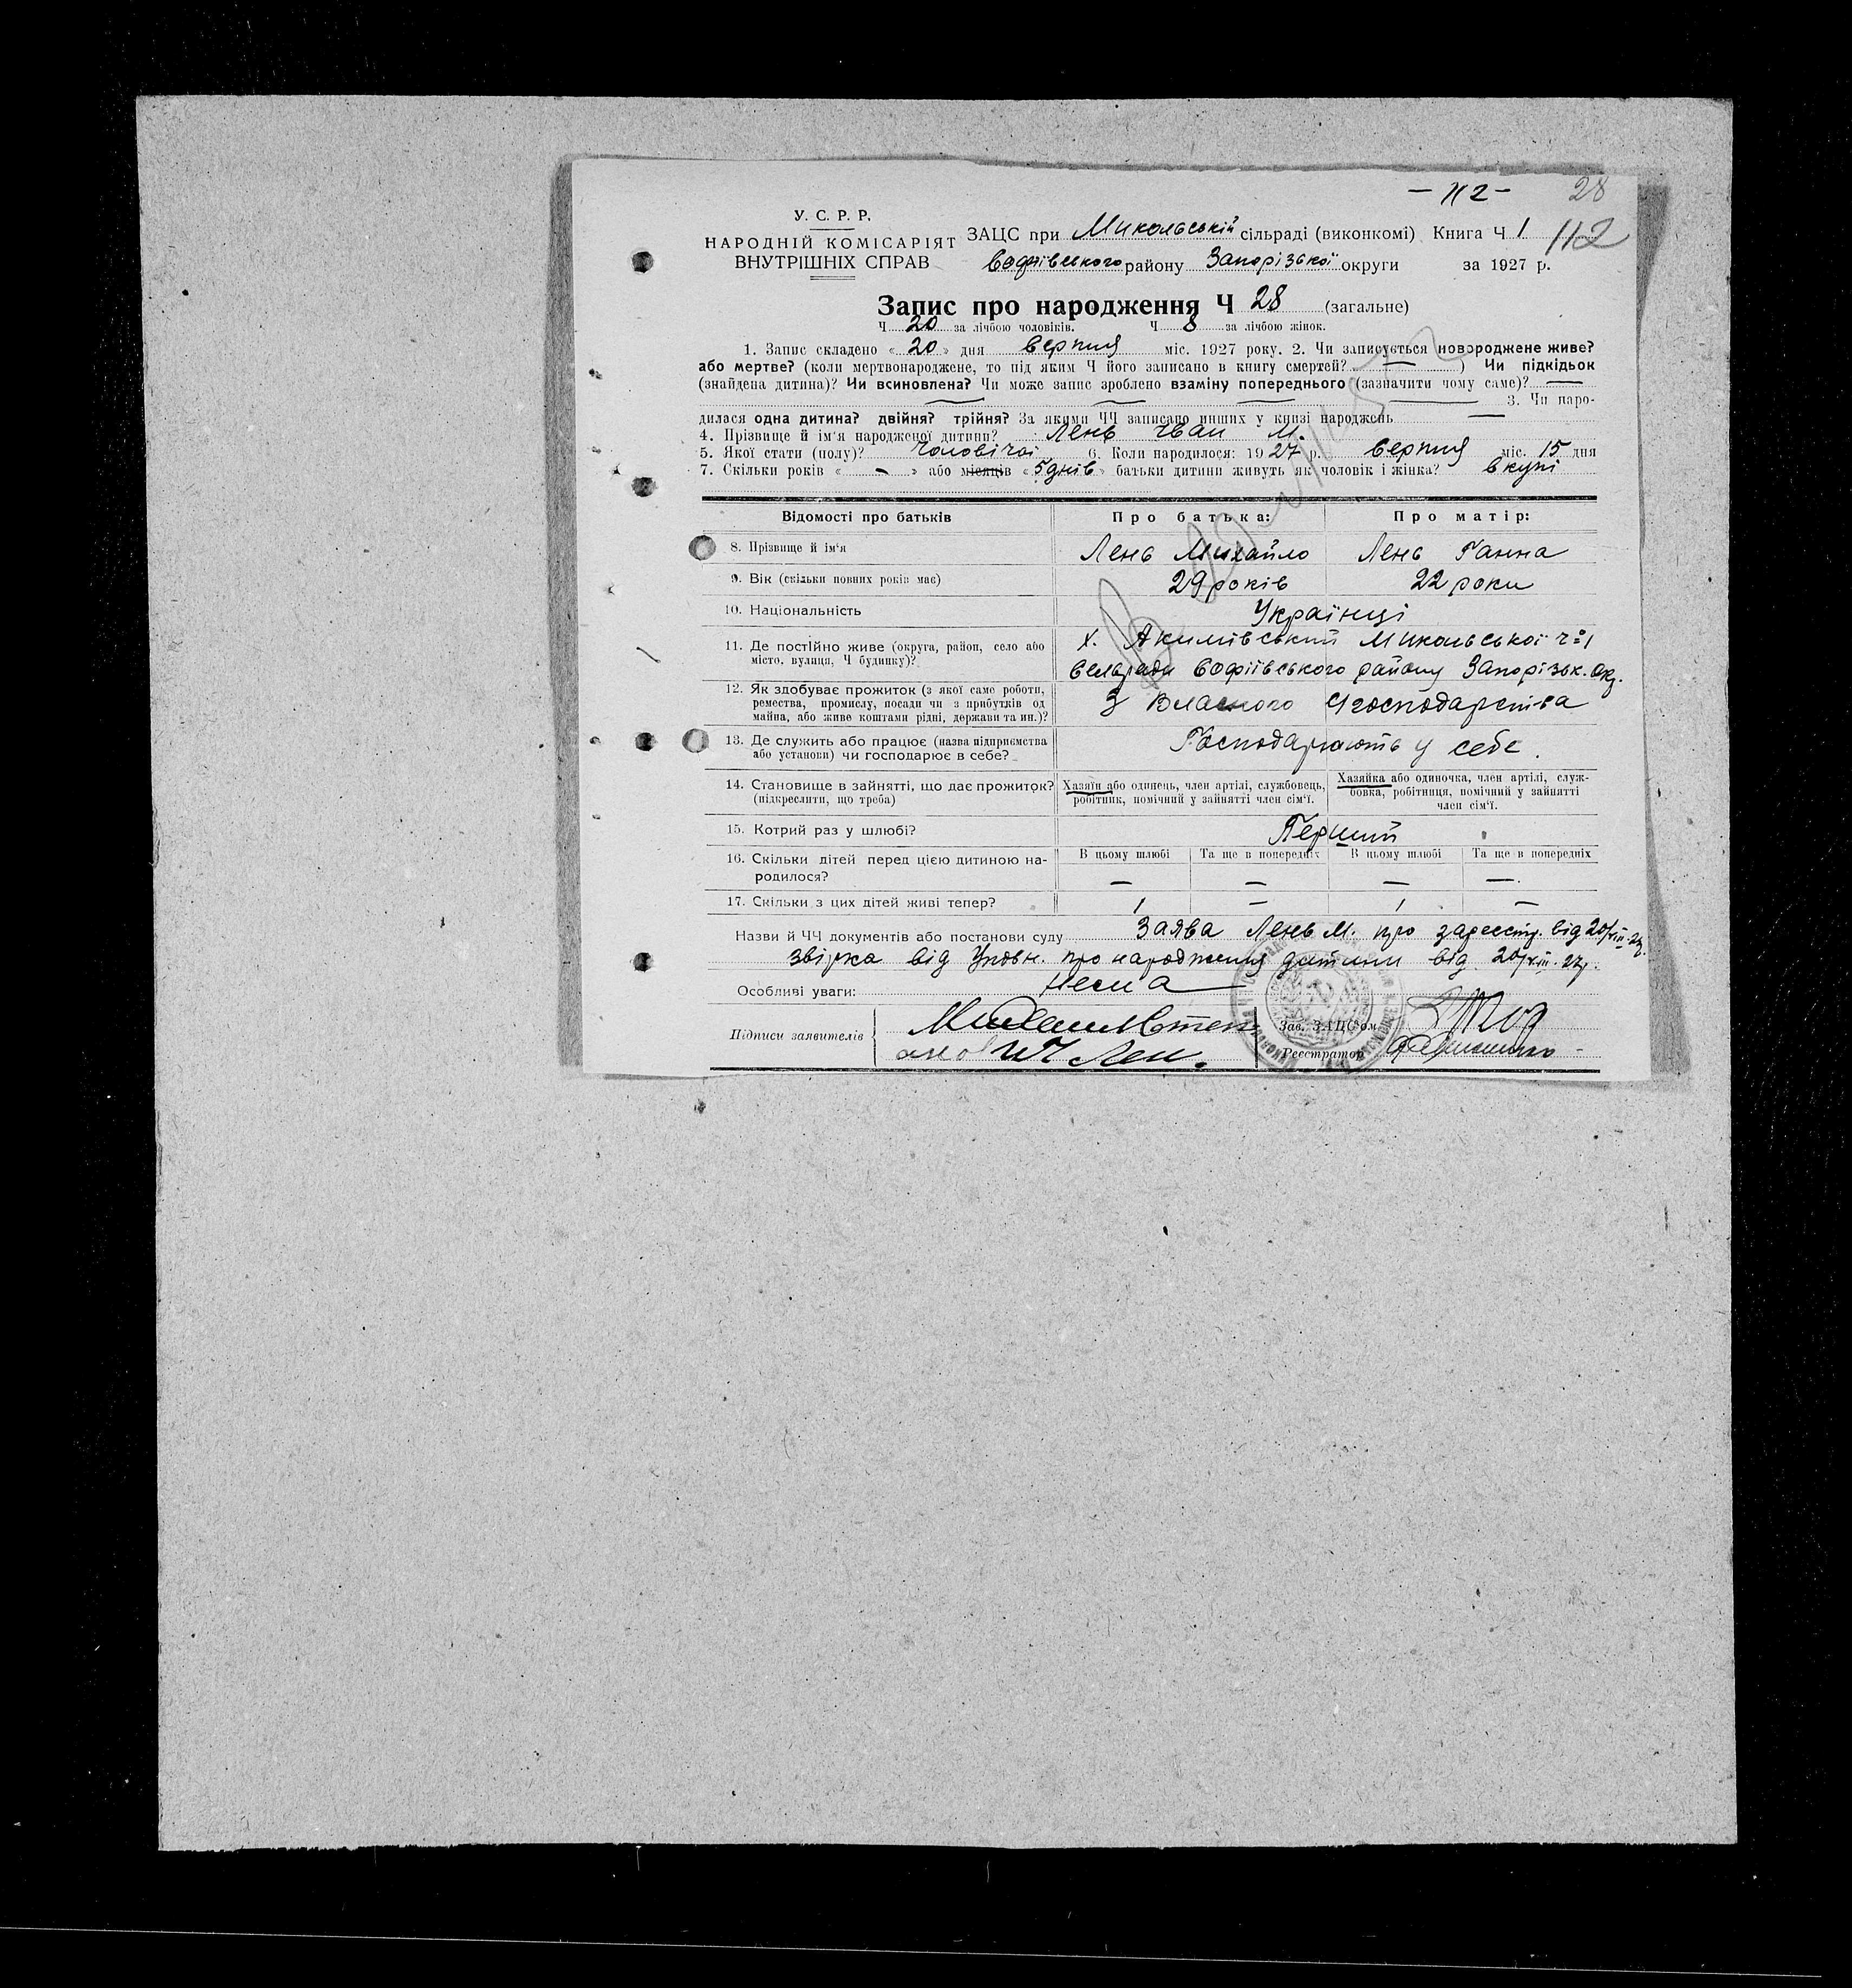 — 112 — 28
У. С. Р. Р.
НАРОДНІЙ КОМІСАРІЯТ
ВНУТРІШНІХ СПРАВ
ЗАЦС при Микольській сільраді (виконкомі) Книга Ч 1 112
району Запорізької округи за 1927 р.
Запис про народження Ч 28 (загальне)
Ч 20 за лічбою чоловіків. Ч 8 за лічбою жінок.
1. Запис складено «20» дня серпня міс. 1927 року. 2. Чи записується новороджене живе?
або мертве? (коли мертвонароджене, то під яким Ч його записано в книгу смертей? — ) Чи підкідьок
(знайдена дитина)? Чи всиновлена? Чи може запис зроблено взаміну попереднього (зазначити чому саме)? —
— — — — 3. Чи наро-
дилася одна дитина? двійня? трійня? За якими ЧЧ записано инших у книзі народжень —
4. Прізвище й ім'я народженої дитини? Лень Іван М.
5. Якої статі (полу)? чоловічої 6. Коли народилося: 1927 р. серпня міс. 15 дня
7. Скільки років « - » або місяців «5 днів» батьки дитини живуть як чоловік і жінка? вкупі
Відомості про батьків Про батька: Про матір:
8. Прізвище й ім'я Лень Михайло Лень Ганна
9. Вік (скільки повних років має) 29 років 22 роки
10. Національність Українці
11. Де постійно живе (округа, район, село або
місто, вулиця, Ч будинку)?
х. Акимівський Микольської ч=1
сельради Софіївського району Запорізьк. окр.
12. Як здобуває прожиток (з якої саме роботи,
ремества, промислу, посади чи з прибутків од
майна, або живе коштами рідні, держави та ин.)?
З власного господарства
13. Де служить або працює (назва підприємства
або установи) чи господарює в себе?
Господарюють у себе.
14. Становище в зайнятті, що дає прожиток?
(підкреслити, що треба)
Хазяїн або одинець, член артілі, службовець,
робітник, помічний у зайнятті член сім'ї.
Хазяйка або одиночка, член артілі, служ-
бовка, робітниця, помічний у зайнятті
член сім'ї.
15. Котрий раз у шлюбі? Перший
16. Скільки дітей перед цією дитиною на-
родилося?
В цьому шлюбі Та ще в попередніх В цьому шлюбі Та ще в попередніх
— — — —
17. Скільки з цих дітей живі тепер? 1 — 1 —
Назви й ЧЧ документів або постанови суду Заява Лень М. про від 20/VIII-27.
від Уповн. про народження дитини від 20/VIII. 27р.
Особливі уваги: Нема
Підписи заявителів
Зав. ЗАЦС'ом
Реєстратор